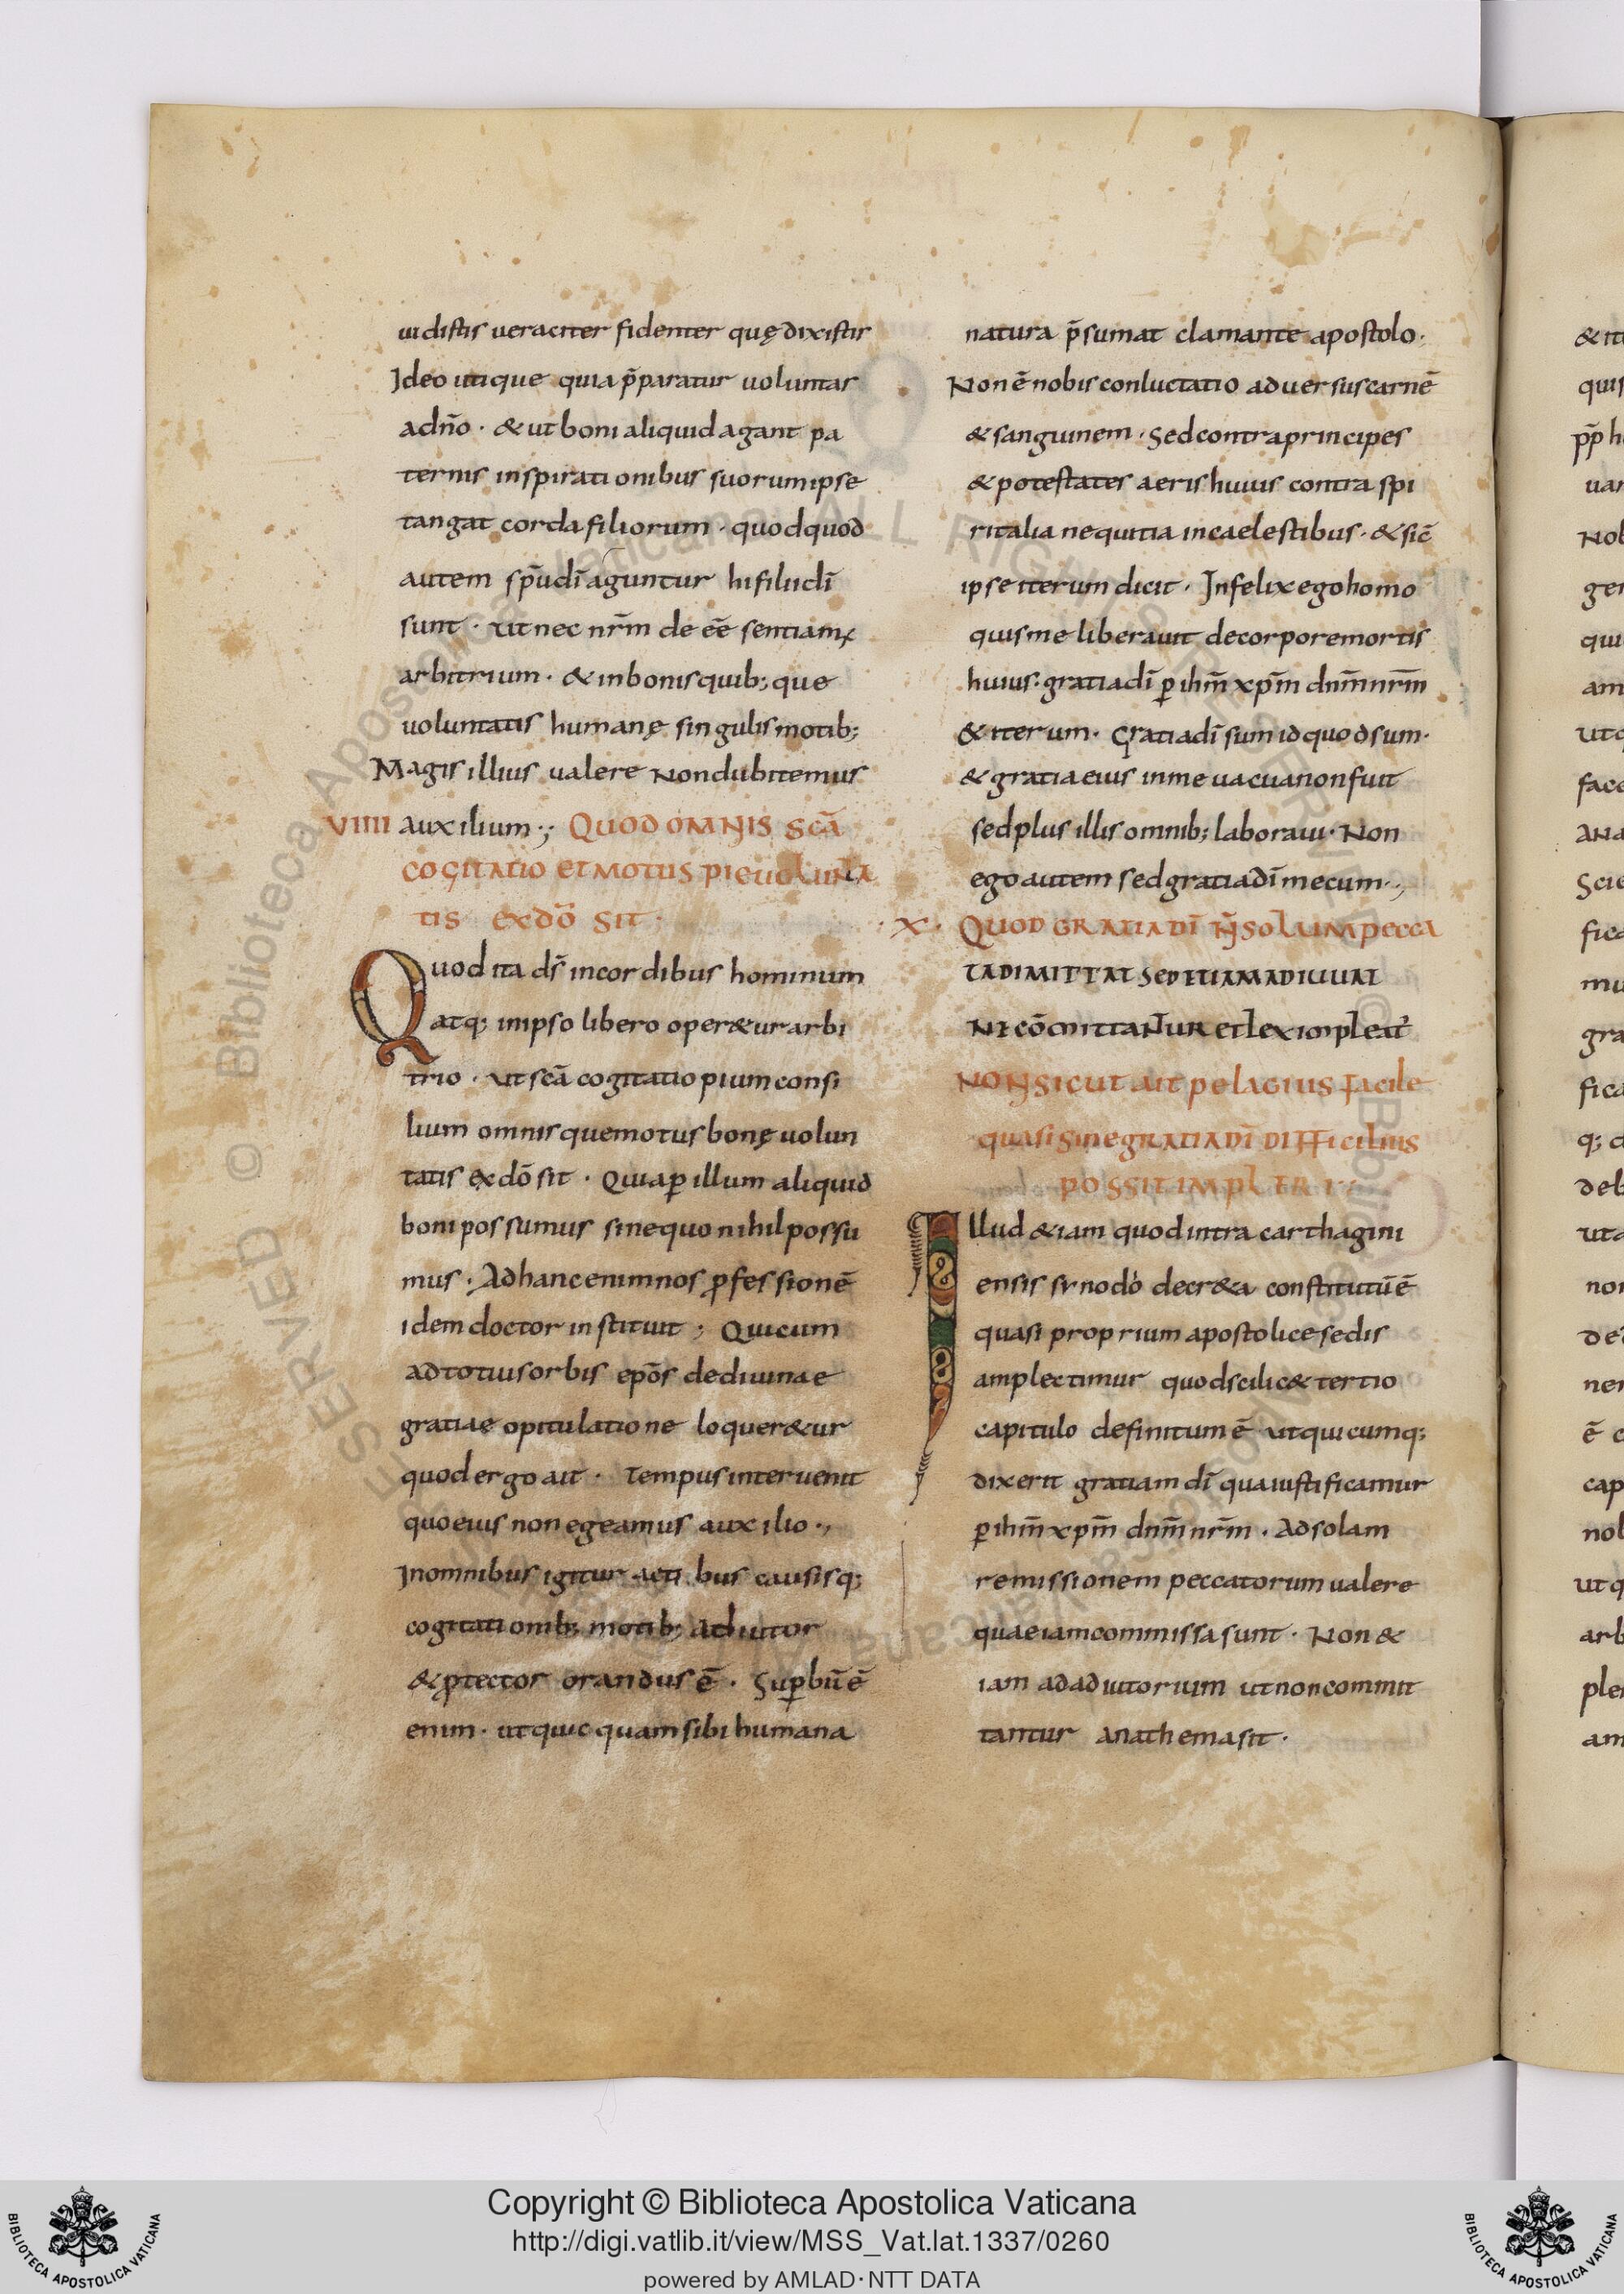 uidistis ueraciter fidenter quę dixistis
Ideo utique quia p̄paratur uoluntas
adn̄o · & ut boni aliquid agant pa
ternis inspirationibus suorum ipse
tangat corda filiorum · quodquod
autem sp̄u dī aguntur hi filii dī
sunt · ut nec nr̄m de eē sentiamꝰ
arbitrium · & in bonis quib; que
uoluntatis humanę singulis motib;
Magis illius ualere non dubitemus
VIIII auxilium ·; QUOD OMNIS SCĀ
COGITATIO ET MOTUS PIE UOLUNTA
TIS EX DŌ SIT ·
Quod ita ds̄ in cordibus hominum
atq; in ipso libero oper&ur arbi
trio · ut scā cogitatio pium consi
lium omnisque motus bonę uolun
tatis ex dō sit · Quia ꝑ illum aliquid
boni possumus sine quo nihil possu
mus · Ad hanc enim nos ꝓfessionē
idem doctor instituit ; Qui cum
ad totius orbis epōs de diuinae
gratiae opitulatione loquer&ur
quod ergo ait · Tempus interuenit
quo eius non egeamus auxilio ·,
In omnibus igitur acti bus causisq;
cogitationib; motib; adiutor
& ꝓtector orandus ē · Suꝑbū ē
enim · ut quicquam sibi humana
natura p̄sumat clamante apostolo ·
Non ē nobis conluctatio aduersus carnē
& sanguinem · Sed contra principes
& potestates aeris huius contra spi
ritalia nequitia in caelestibus · & sic̄
ipse iterum dicit · Infelix ego homo
quis me liberauit de corpore mortis
huius · gratia dī ꝑ ihm̄ xpm̄ dnm̄ nr̄m
& iterum · Gratia dī sum id quod sum ·
& gratia eius in me uacua non fuit
sed plus illis omnib; laboraui · Non
ego autem sed gratia dī mecum ·,
· X · QUOD GRATIA DĪ N̄ SOLUM PECCA
TA DIMITTAT SED ETIAM ADIUUAT
NE CŌMITTANTUR ET LEX IMPLEAT̄
NON SICUT AIT PELAGIUS FACILE
QUASI SINE GRATIA DĪ DIFFICILIUS
POSSIT IMPLERI ·
Illud &iam quod intra carthagini
ensis synodo decr&a constitutū ē
quasi proprium apostolice sedis
amplectimur quod scilic& tertio
capitulo definitum ē ut quicumq;
dixerit gratiam dī qua iustificamur
ꝑ ihm̄ xpm̄ dnm̄ nr̄m · Ad solam
remissionem peccatorum ualere
quae iam commissa sunt · Non &
iam ad adiutorium ut non commit
tantur anathema sit ·
Copyright © Biblioteca Apostolica Vaticana
http://digi.vatlib.it/view/MSS_Vat.lat.1337/0260
powered by AMLAD·NTT DATA
BIBLIOTECA APOSTOLICA VATICANA
BIBLIOTECA APOSTOLICA VATICANA